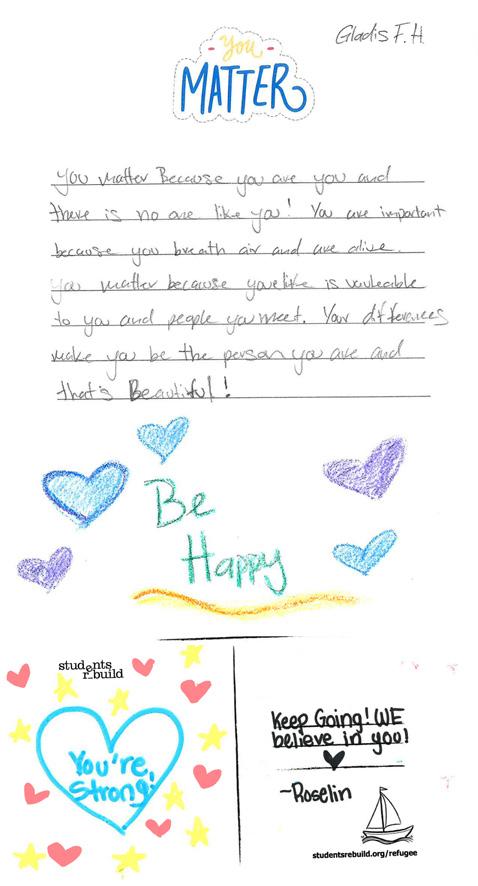 Gladis F.H.
You
MATTER
You matter Because you are you and
there is no one like you! You are important
because you breath air and are alive.
you matter because your life is vauleable
to you and people you meet. Your differences
make you be the person you are and
that's Beautiful!
Be
Happy
students
rebuild
You're
Strong!
Keep Going! WE
believe in you!
~Roselin
studentsrebuild.org/refugee